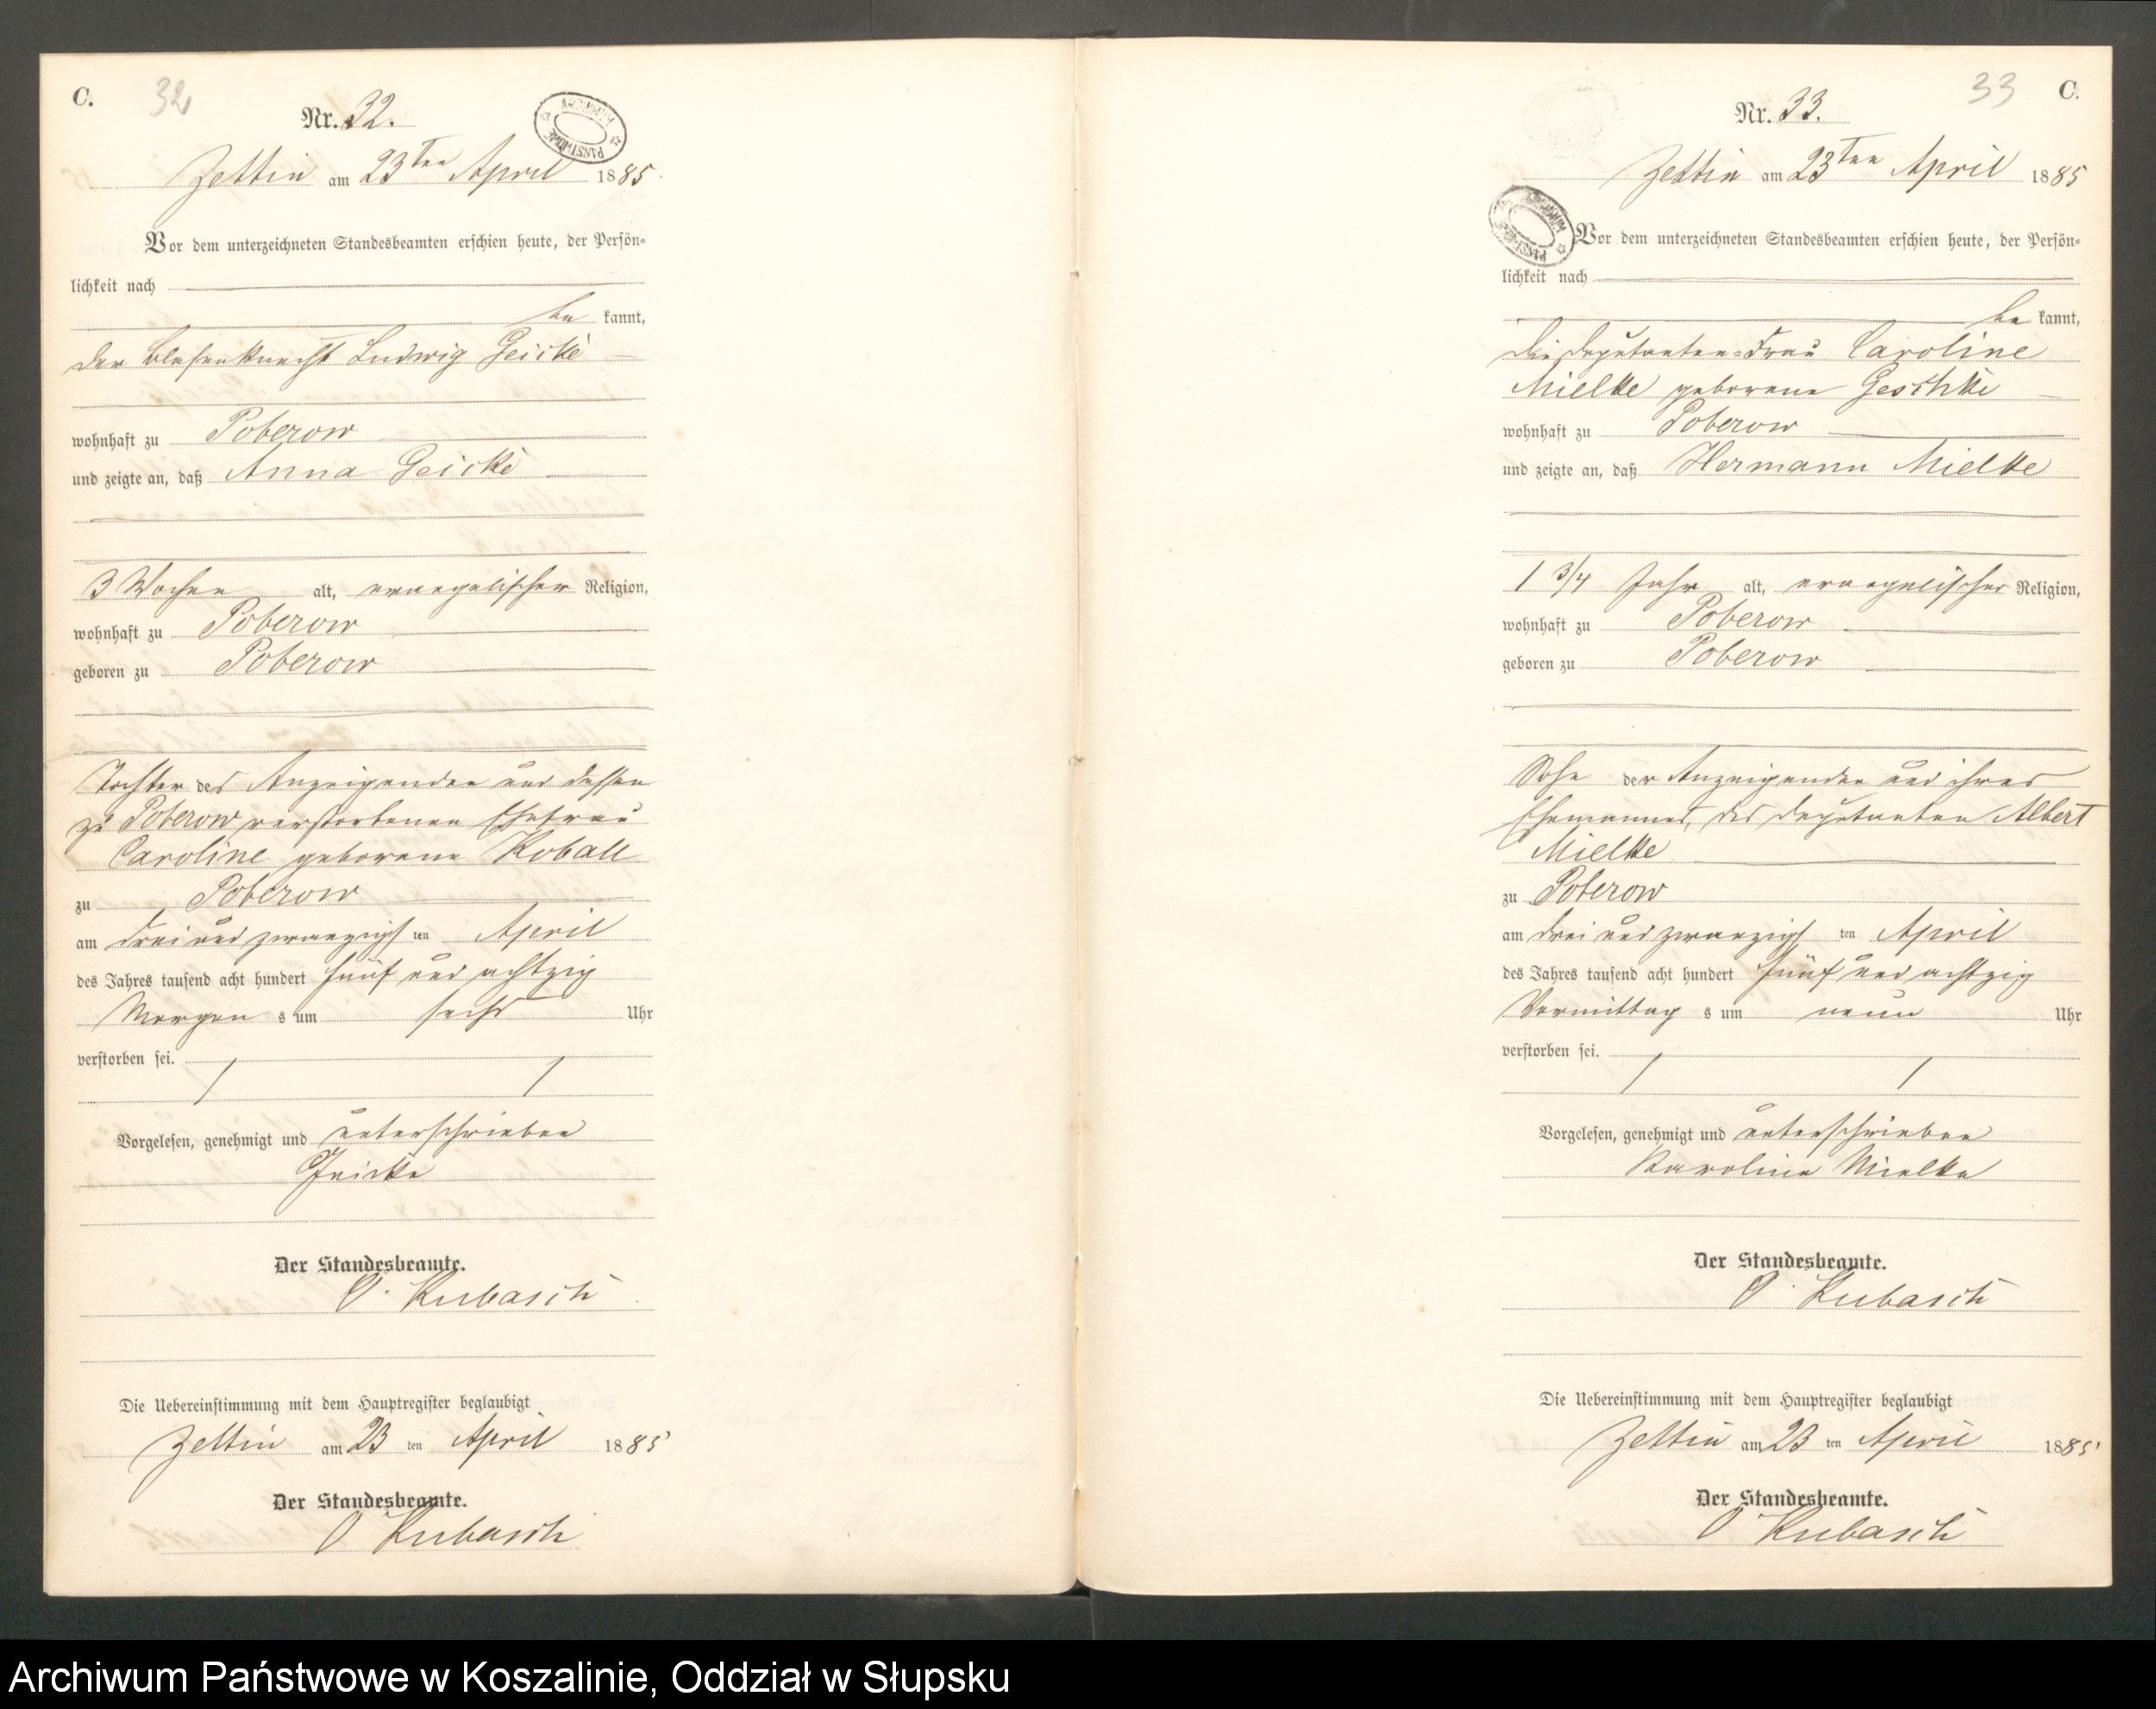 C.
32
Nr. 32.
ARCHIWUM PAŃSTWOWE
Zettin am 23ten April 1885.
Vor dem unterzeichneten Standesbeamten erschien heute, der Persön-
lichkeit nach
be kannt,
der Ludwig Geicke
wohnhaft zu Poberow
und zeigte an, daß Anna Geicke
3 Wochen alt, evangelischer Religion,
wohnhaft zu Poberow
geboren zu Poberow
Tochter des Anzeigenden und dessen
zu Poberow verstorbenen Ehefrau
Caroline geborene Koball
zu Poberow
am drei und zwanzigs ten April
des Jahres tausend acht hundert fünf und achtzig
Morgen s um sechs Uhr
verstorben sei.
Vorgelesen, genehmigt und unterschrieben
Geicke
Der Standesbeamte.
O. Kubasch
Die Uebereinstimmung mit dem Hauptregister beglaubigt
Zettin am 23 ten April 1885
Der Standesbeamte.
O Kubasch
33
C.
Nr. 33.
Zettin am 23ten April 1885
ARCHIWUM PAŃSTWOWE
Vor dem unterzeichneten Standesbeamten erschien heute, der Persön-
lichkeit nach
be kannt,
die Deputanten-Frau Caroline
Mielke geborene Geschke
wohnhaft zu Poberow
und zeigte an, daß Hermann Mielke
1 3/4 Jahr alt, evangelischer Religion,
wohnhaft zu Poberow
geboren zu Poberow
Sohn der Anzeigenden und ihres
Ehemannes, des Deputanten Albert
Mielke
zu Poberow
am drei und zwanzigs ten April
des Jahres tausend acht hundert fünf und achtzig
Vormittag s um neun Uhr
verstorben sei.
Vorgelesen, genehmigt und unterschrieben
Karoline Mielke
Der Standesbeamte.
O. Kubasch
Die Uebereinstimmung mit dem Hauptregister beglaubigt
Zettin am 23 ten April 1885
Der Standesbeamte.
O Kubasch
Archiwum Państwowe w Koszalinie, Oddział w Słupsku